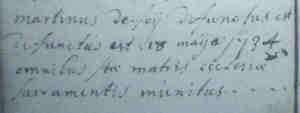 martinus defunctus est
defunctus est 18 maija 1734
omnibus stæ matris ecclesiæ
sacramentis munitus . . . .